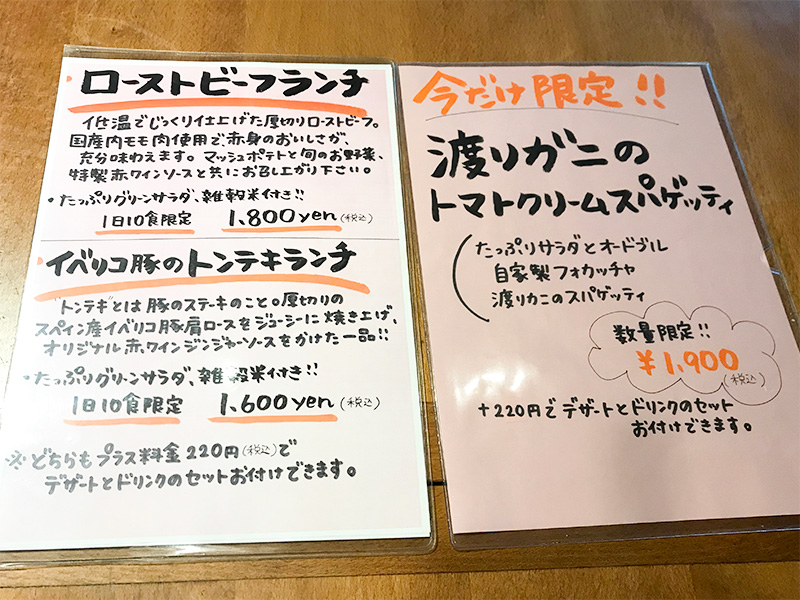 ローストビーフランチ
低温でじっくり仕上げた厚切りローストビーフ。
国産内モモ肉使用で、赤身のおいしさが、
充分味わえます。マッシュポテトと旬のお野菜、
特製赤ワインソースと共にお召し上がり下さい。
・たっぷりグリーンサラダ、雑穀米付き!!
1日10食限定 1,800yen(税込)
イベリコ豚のトンテキランチ
"トンテキ"とは豚のステーキのこと。厚切りの
スペイン産イベリコ豚肩ロースをジューシーに焼き上げ、
オリジナル赤ワインジンジャーソースをかけた一品!!
・たっぷりグリーンサラダ、雑穀米付き!!
1日10食限定 1,600yen(税込)
※どちらもプラス料金220円(税込)で
デザートとドリンクのセットお付けできます。
今だけ限定!!
渡りガニの
トマトクリームスパゲッティ
たっぷりサラダとオードブル
自家製フォカッチャ
渡りカニのスパゲッティ
数量限定!!
¥1,900
(税込)
+220円でデザートとドリンクのセット
お付けできます。